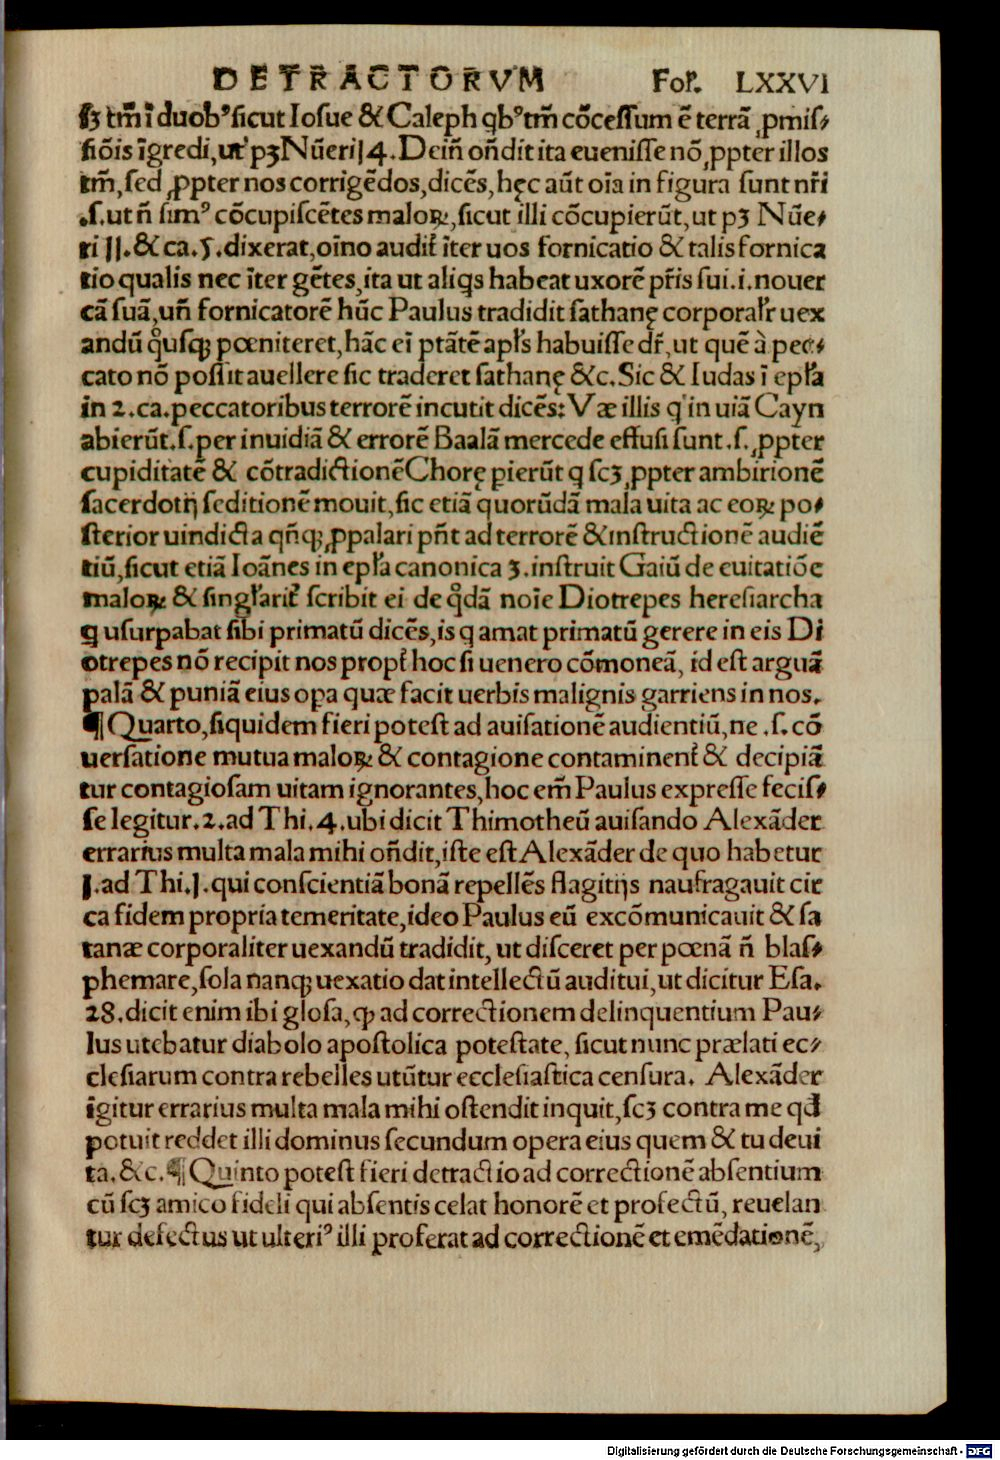 DETRACTORVM Fol. LXXVI
sꝫ tm̄ ī duobꝰ sicut Iosue & Caleph qbꝰ tm̄ cōcessum ē terrā ꝓmis⸗
siōis īgredi, ut pꝫ Nūeri 14. Dein̄ on̄dit ita euenisse nō ꝓpter illos
tm̄, sed ꝓpter nos corrigēdos, dicēs, hęc aūt oīa in figura sunt nr̄i
.s. ut n̄ simꝰ cōcupiscētes maloꝝ, sicut illi cōcupierūt, ut pꝫ Nūe⸗
ri 11. & ca. 5. dixerat, oīno audit̄ īter uos fornicatio & talis fornica
tio qualis nec īter gētes, ita ut aliqs habeat uxorē pr̄is sui .i. nouer
cā suā, un̄ fornicatorē hūc Paulus tradidit sathanę corporalr̄ uex
andū quusqꝫ pœniteret, hāc eī ptātē apl̄s habuisse dr̄, ut quē à pec⸗
cato nō possit auellere sic traderet sathanę &c. Sic & Iudas ī epl̄a
in 2. ca. peccatoribus terrorē incutit dicēs: Væ illis q in uiā Cayn
abierūt .s. per inuidiā & errorē Baalā mercede effusi sunt .s. ꝓpter
cupiditatē & cōtradictionē Chorę ꝑierūt q scꝫ ꝓpter ambirionē
sacerdotij seditionē mouit, sic etiā quorūdā mala uita ac eoꝝ po⸗
sterior uindicta qn̄qꝫ ꝓpalari pn̄t ad terrorē & instructionē audiē
tiū, sicut etiā Ioānes in epl̄a canonica 3. instruit Gaiū de euitatiōe
maloꝝ & singl̄arit̄ scribit ei de qdā noīe Diotrepes heresiarcha
q usurpabat sibi primatū dicēs, is q amat primatū gerere in eis Di
otrepes nō recipit nos propt̄ hoc si uenero cōmoneā, id est arguā
palā & puniā eius opa quæ facit uerbis malignis garriens in nos.
¶ Quarto, siquidem fieri potest ad auisationē audientiū, ne .s. cō
uersatione mutua maloꝝ & contagione contaminent̄ & decipiā
tur contagiosam uitam ignorantes, hoc em̄ Paulus expresse fecis⸗
se legitur. 2. ad Thi. 4. ubi dicit Thimotheū auisando Alexāder
errarius multa mala mihi on̄dit, iste est Alexāder de quo habetur
1. ad Thi. 1. qui conscientiā bonā repellēs flagitijs naufragauit cir
ca fidem propria temeritate, ideo Paulus eū excōmunicauit & sa
tanæ corporaliter uexandū tradidit, ut disceret per pœnā n̄ blas⸗
phemare, sola nanqꝫ uexatio dat intellectū auditui, ut dicitur Esa.
28. dicit enim ibi glosa, ꝙ ad correctionem delinquentium Pau⸗
lus utebatur diabolo apostolica potestate, sicut nunc prælati ec⸗
clesiarum contra rebelles utūtur ecclesiastica censura. Alexāder
īgitur errarius multa mala mihi ostendit inquit, scꝫ contra me qd
potuit reddet illi dominus secundum opera eius quem & tu deui
ta. &c. ¶ Quinto potest fieri detractio ad correctionē absentium
cū scꝫ amico fideli qui absentis celat honorē et profectū, reuelan
tur defectus ut ulteriꝰ illi proferat ad correctionē et emēdationē,
Digitalisierung gefördert durch die Deutsche Forschungsgemeinschaft - DFG